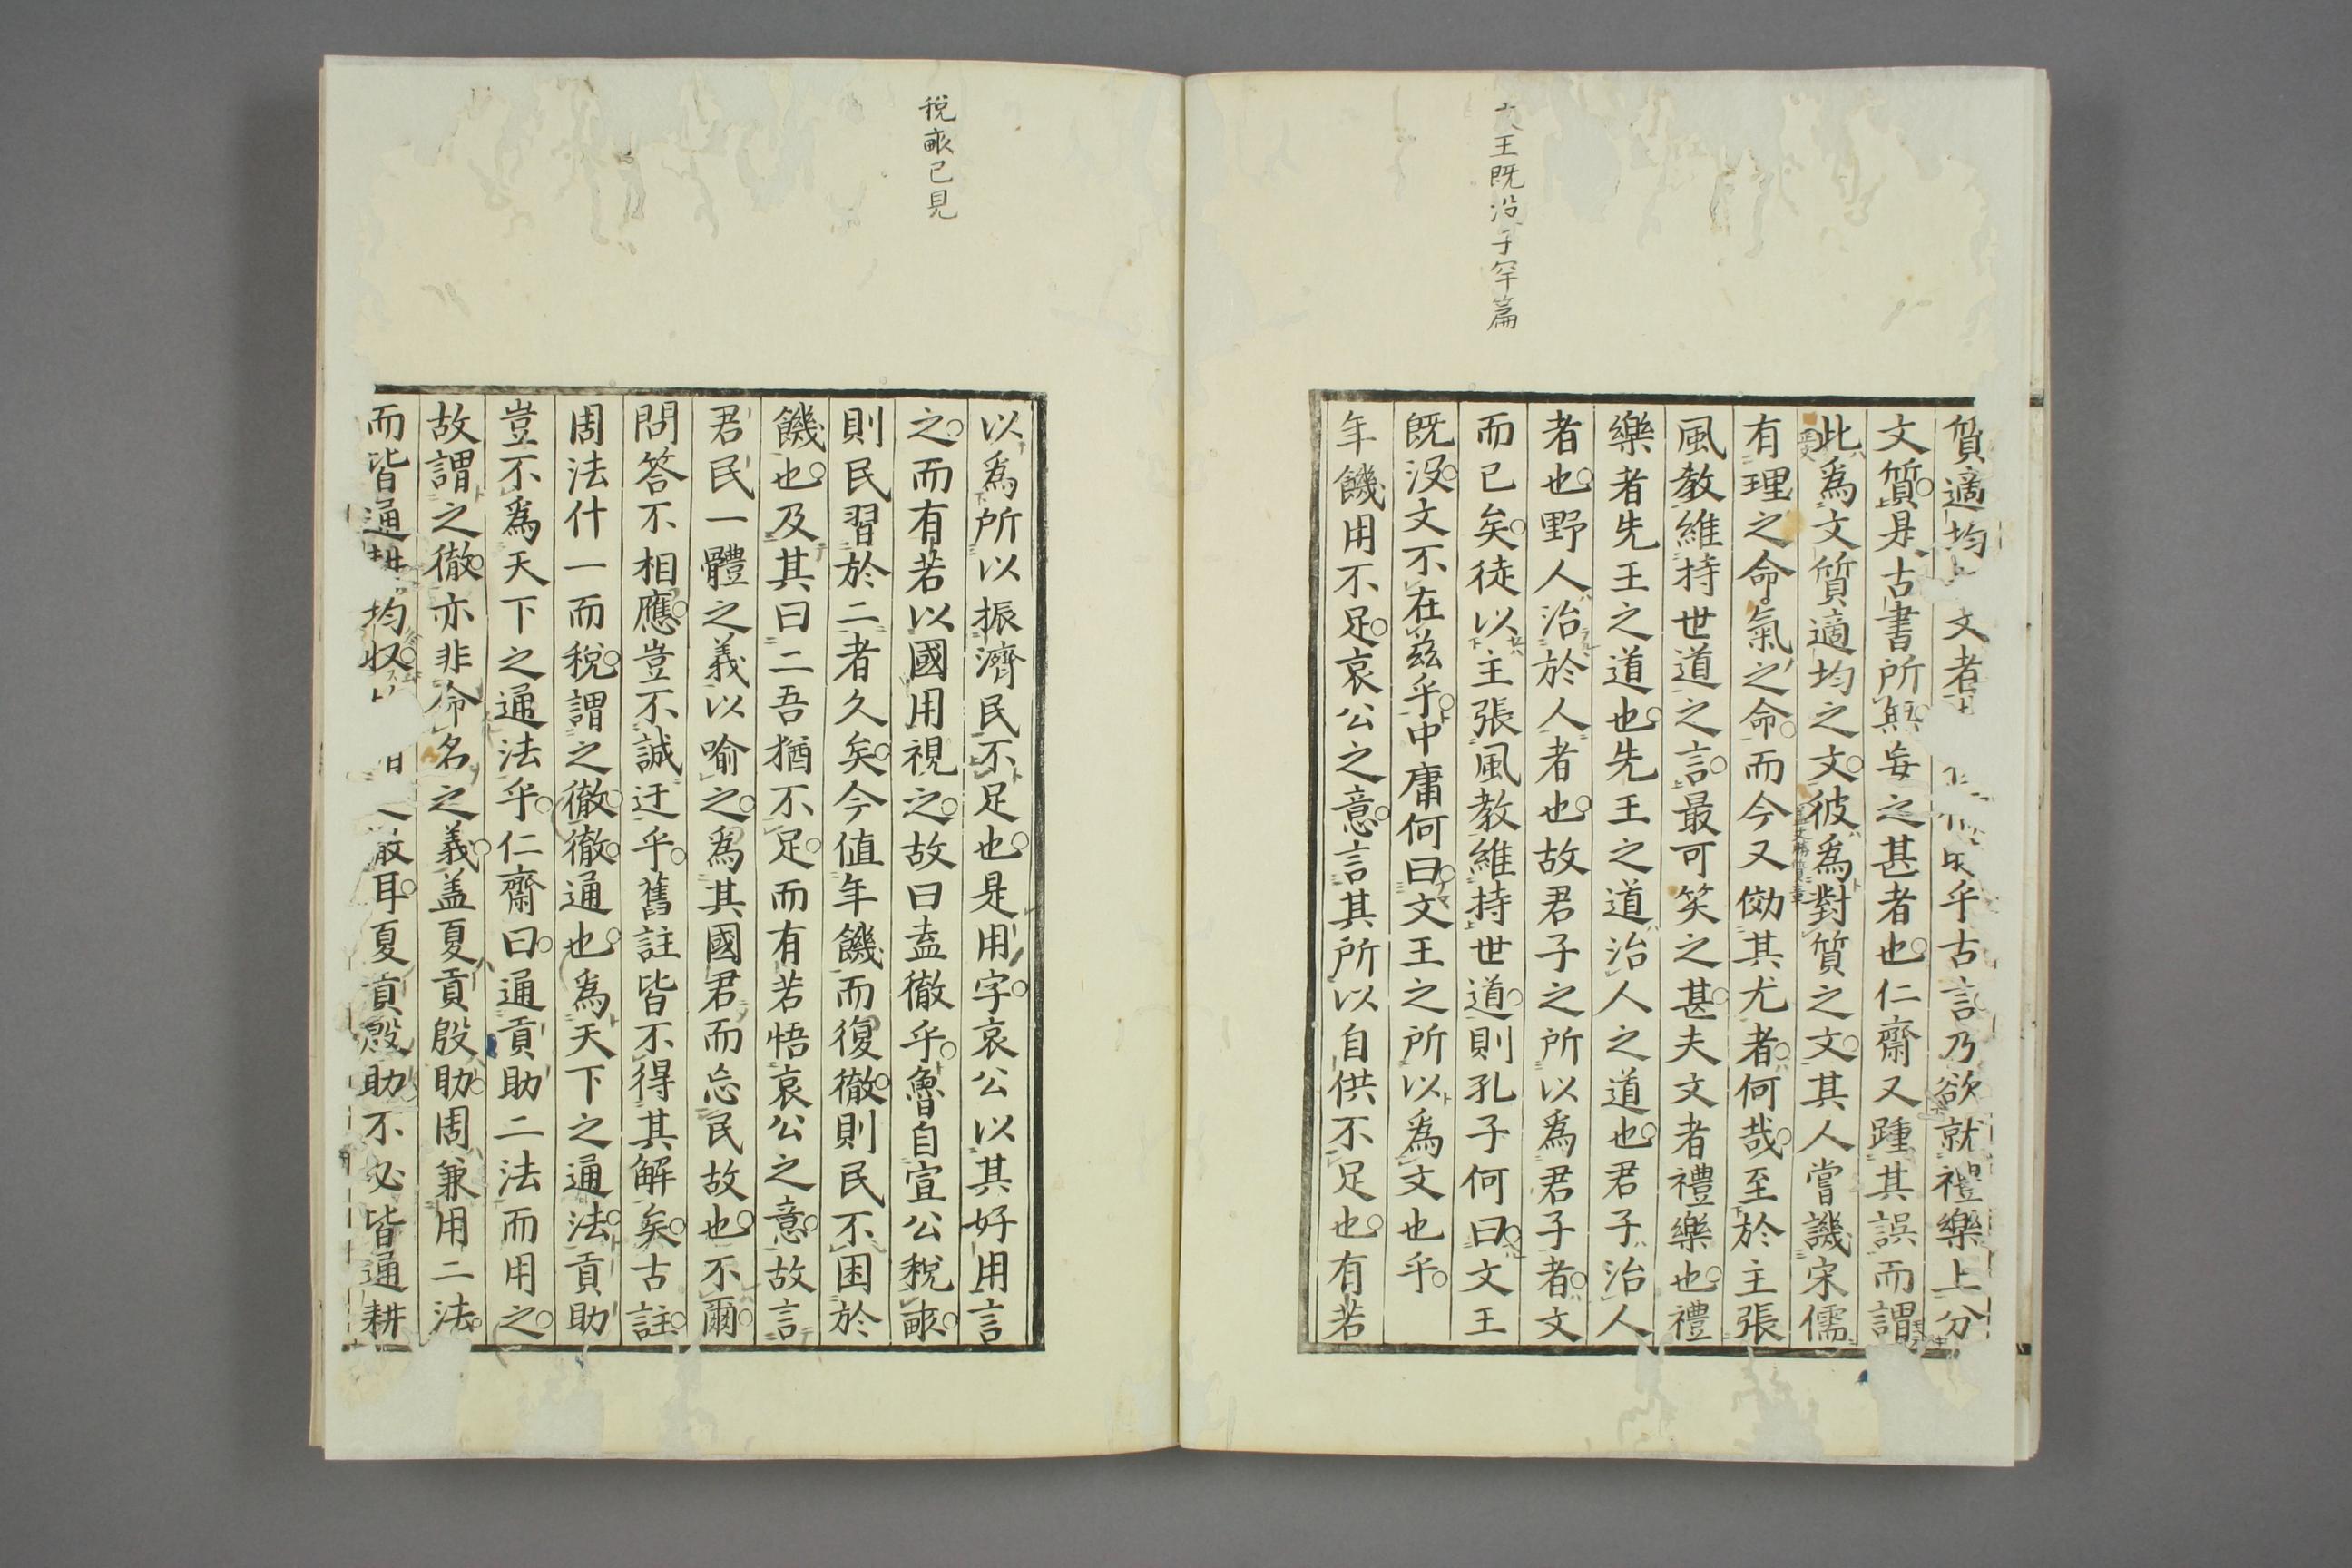 文王既沒子罕篇
質適均文者乎古言乃欲就禮樂上分
文質是古書所無妄之甚者也仁齋又踵其誤而謂
此爲文質適均之文彼爲對質之文其人嘗譏宋儒
有理之命氣之命而今又傚其尤者何哉至於主張
風教維持世道之言最可笑之甚夫文者禮樂也禮
樂者先王之道也先王之道治人之道也君子治人
者也野人治於人者也故君子之所以爲君子者文
而已矣徒以主張風教維持世道則孔子何曰文王
既沒文不在茲乎中庸何曰文王之所以爲文也乎
年饑用不足哀公之意言其所以自供不足也有若
稅畞已見
以爲所以振濟民不足也是用字哀公以其好用言
之而有若以國用視之故曰盍徹乎魯自宣公稅畞
則民習於二者久矣今値年饑而復徹則民不困於
饑也及其曰二吾猶不足而有若悟哀公之意故言
君民一體之義以喻之爲其國君而忘民故也不爾
問答不相應豈不誠迂乎舊註皆不得其解矣古註
周法什一而稅謂之徹徹通也爲天下之通法貢助
豈不爲天下之通法乎仁齋曰通貢助二法而用之
故謂之徹亦非命名之義蓋夏貢殷助周兼用二法
而皆通耕均收徹耳夏貢殷助不必皆通耕